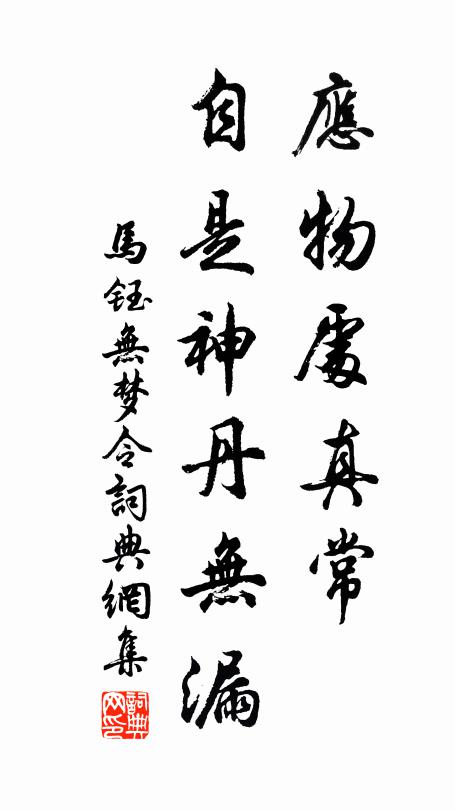 應物處真常
自是神丹無漏
馬鈺無梦令詞典網集
詞典网印